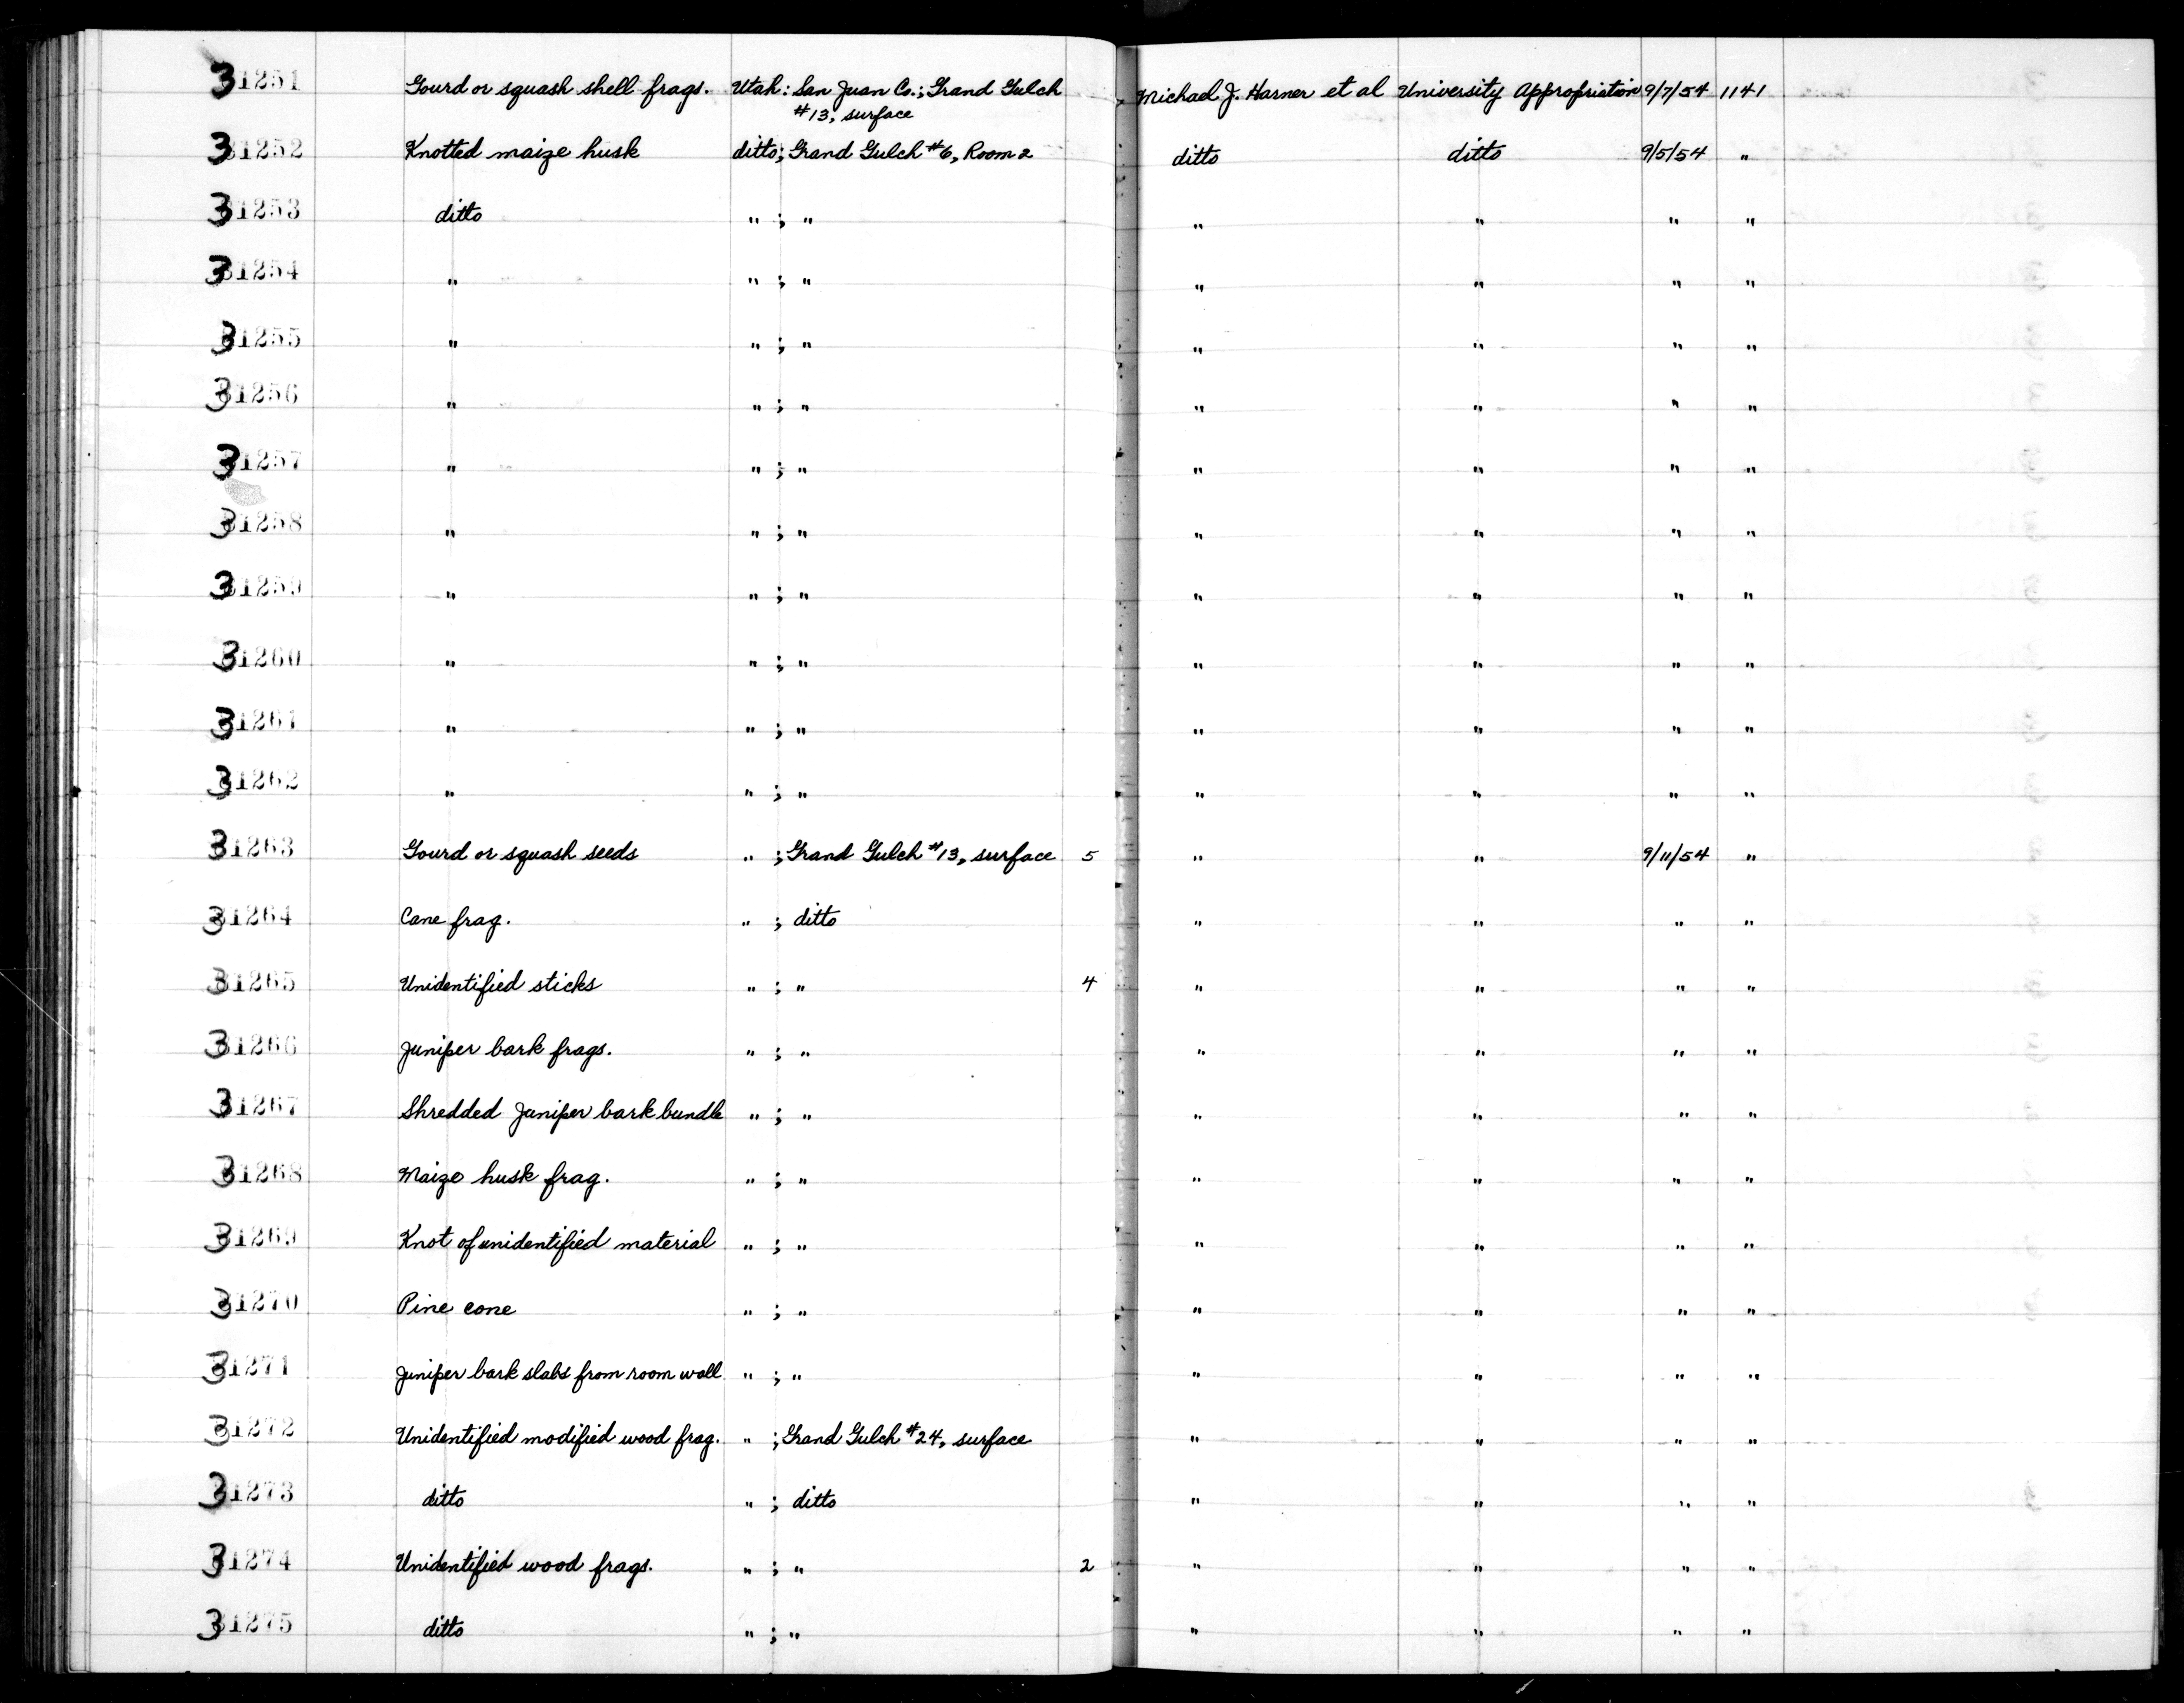 31251 Gourd or squash shell frags. Utah: San Juan Co.; Grand Gulch Michael J. Harner et al University Appropriation 9/7/54 1141
#13, surface
31252 Knotted maize husk ditto; Grand Gulch #6, Room 2 ditto ditto 9/5/54 "
31253 ditto " ; " " " " "
31254 " " ; " " " " "
31255 " " ; " " " " "
31256 " " ; " " " " "
31257 " " ; " " " " "
31258 " " ; " " " " "
31259 " " ; " " " " "
31260 " " ; " " " " "
31261 " " ; " " " " "
31262 " " ; " " " " "
31263 Gourd or squash seeds " ; Grand Gulch #13, surface 5 " " 9/11/54 "
31264 Cane frag. " ; ditto " " " "
31265 Unidentified sticks " ; " 4 " " " "
31266 Juniper bark frags. " ; " " " " "
31267 Shredded Juniper bark bundle " ; " " " " "
31268 Maize husk frag. " ; " " " " "
31269 Knot of unidentified material " ; " " " " "
31270 Pine cone " ; " " " " "
31271 Juniper bark slabs from room wall " ; " " " " "
31272 Unidentified modified wood frag. " ; Grand Gulch #24, surface " " " "
31273 ditto " ; ditto " " " "
31274 Unidentified wood frags. " ; " 2 " " " "
31275 ditto " ; " " " " "